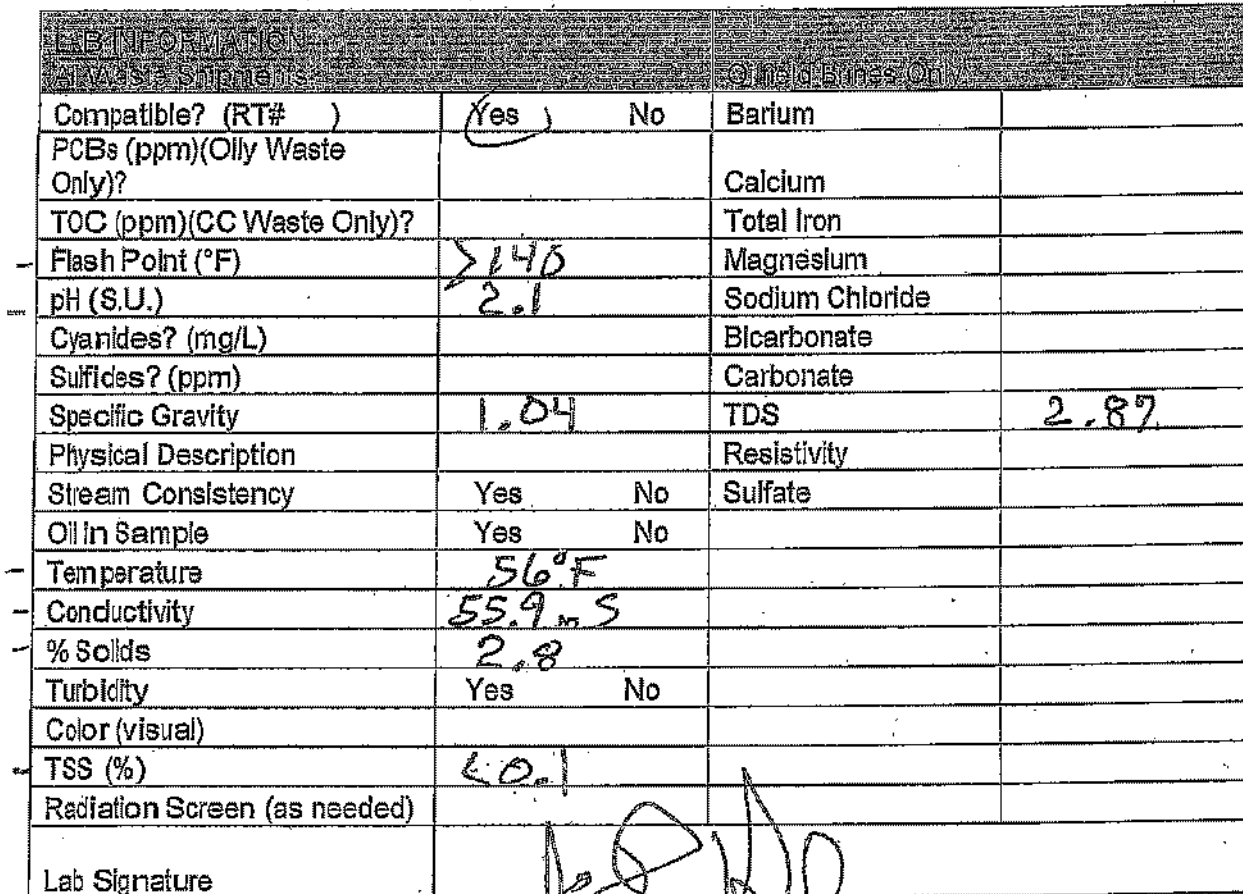 LAB INFORMATION
All Waste Shipments Oilfield Brines Only
Compatible? (RT# ) Yes No Barium
PCBs (ppm)(Oily Waste
Only)? Calcium
TOC (ppm)(CC Waste Only)? Total Iron
Flash Point (°F) >140 Magnesium
pH (S.U.) 2.1 Sodium Chloride
Cyanides? (mg/L) Bicarbonate
Sulfides? (ppm) Carbonate
Specific Gravity 1.04 TDS 2.87
Physical Description Resistivity
Stream Consistency Yes No Sulfate
Oil in Sample Yes No
Temperature 56°F
Conductivity 55.9 mS
% Solids 2.8
Turbidity Yes No
Color (visual)
TSS (%) <0.1
Radiation Screen (as needed)
Lab Signature